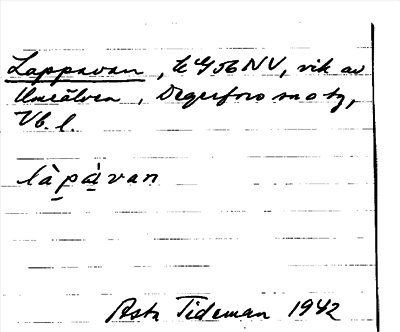 Lappavan, k 56 NV, vik av
Umeälven, Degerfors sn o tg,
Vb. l.
là̱pà̱van
Asta Tideman 1942